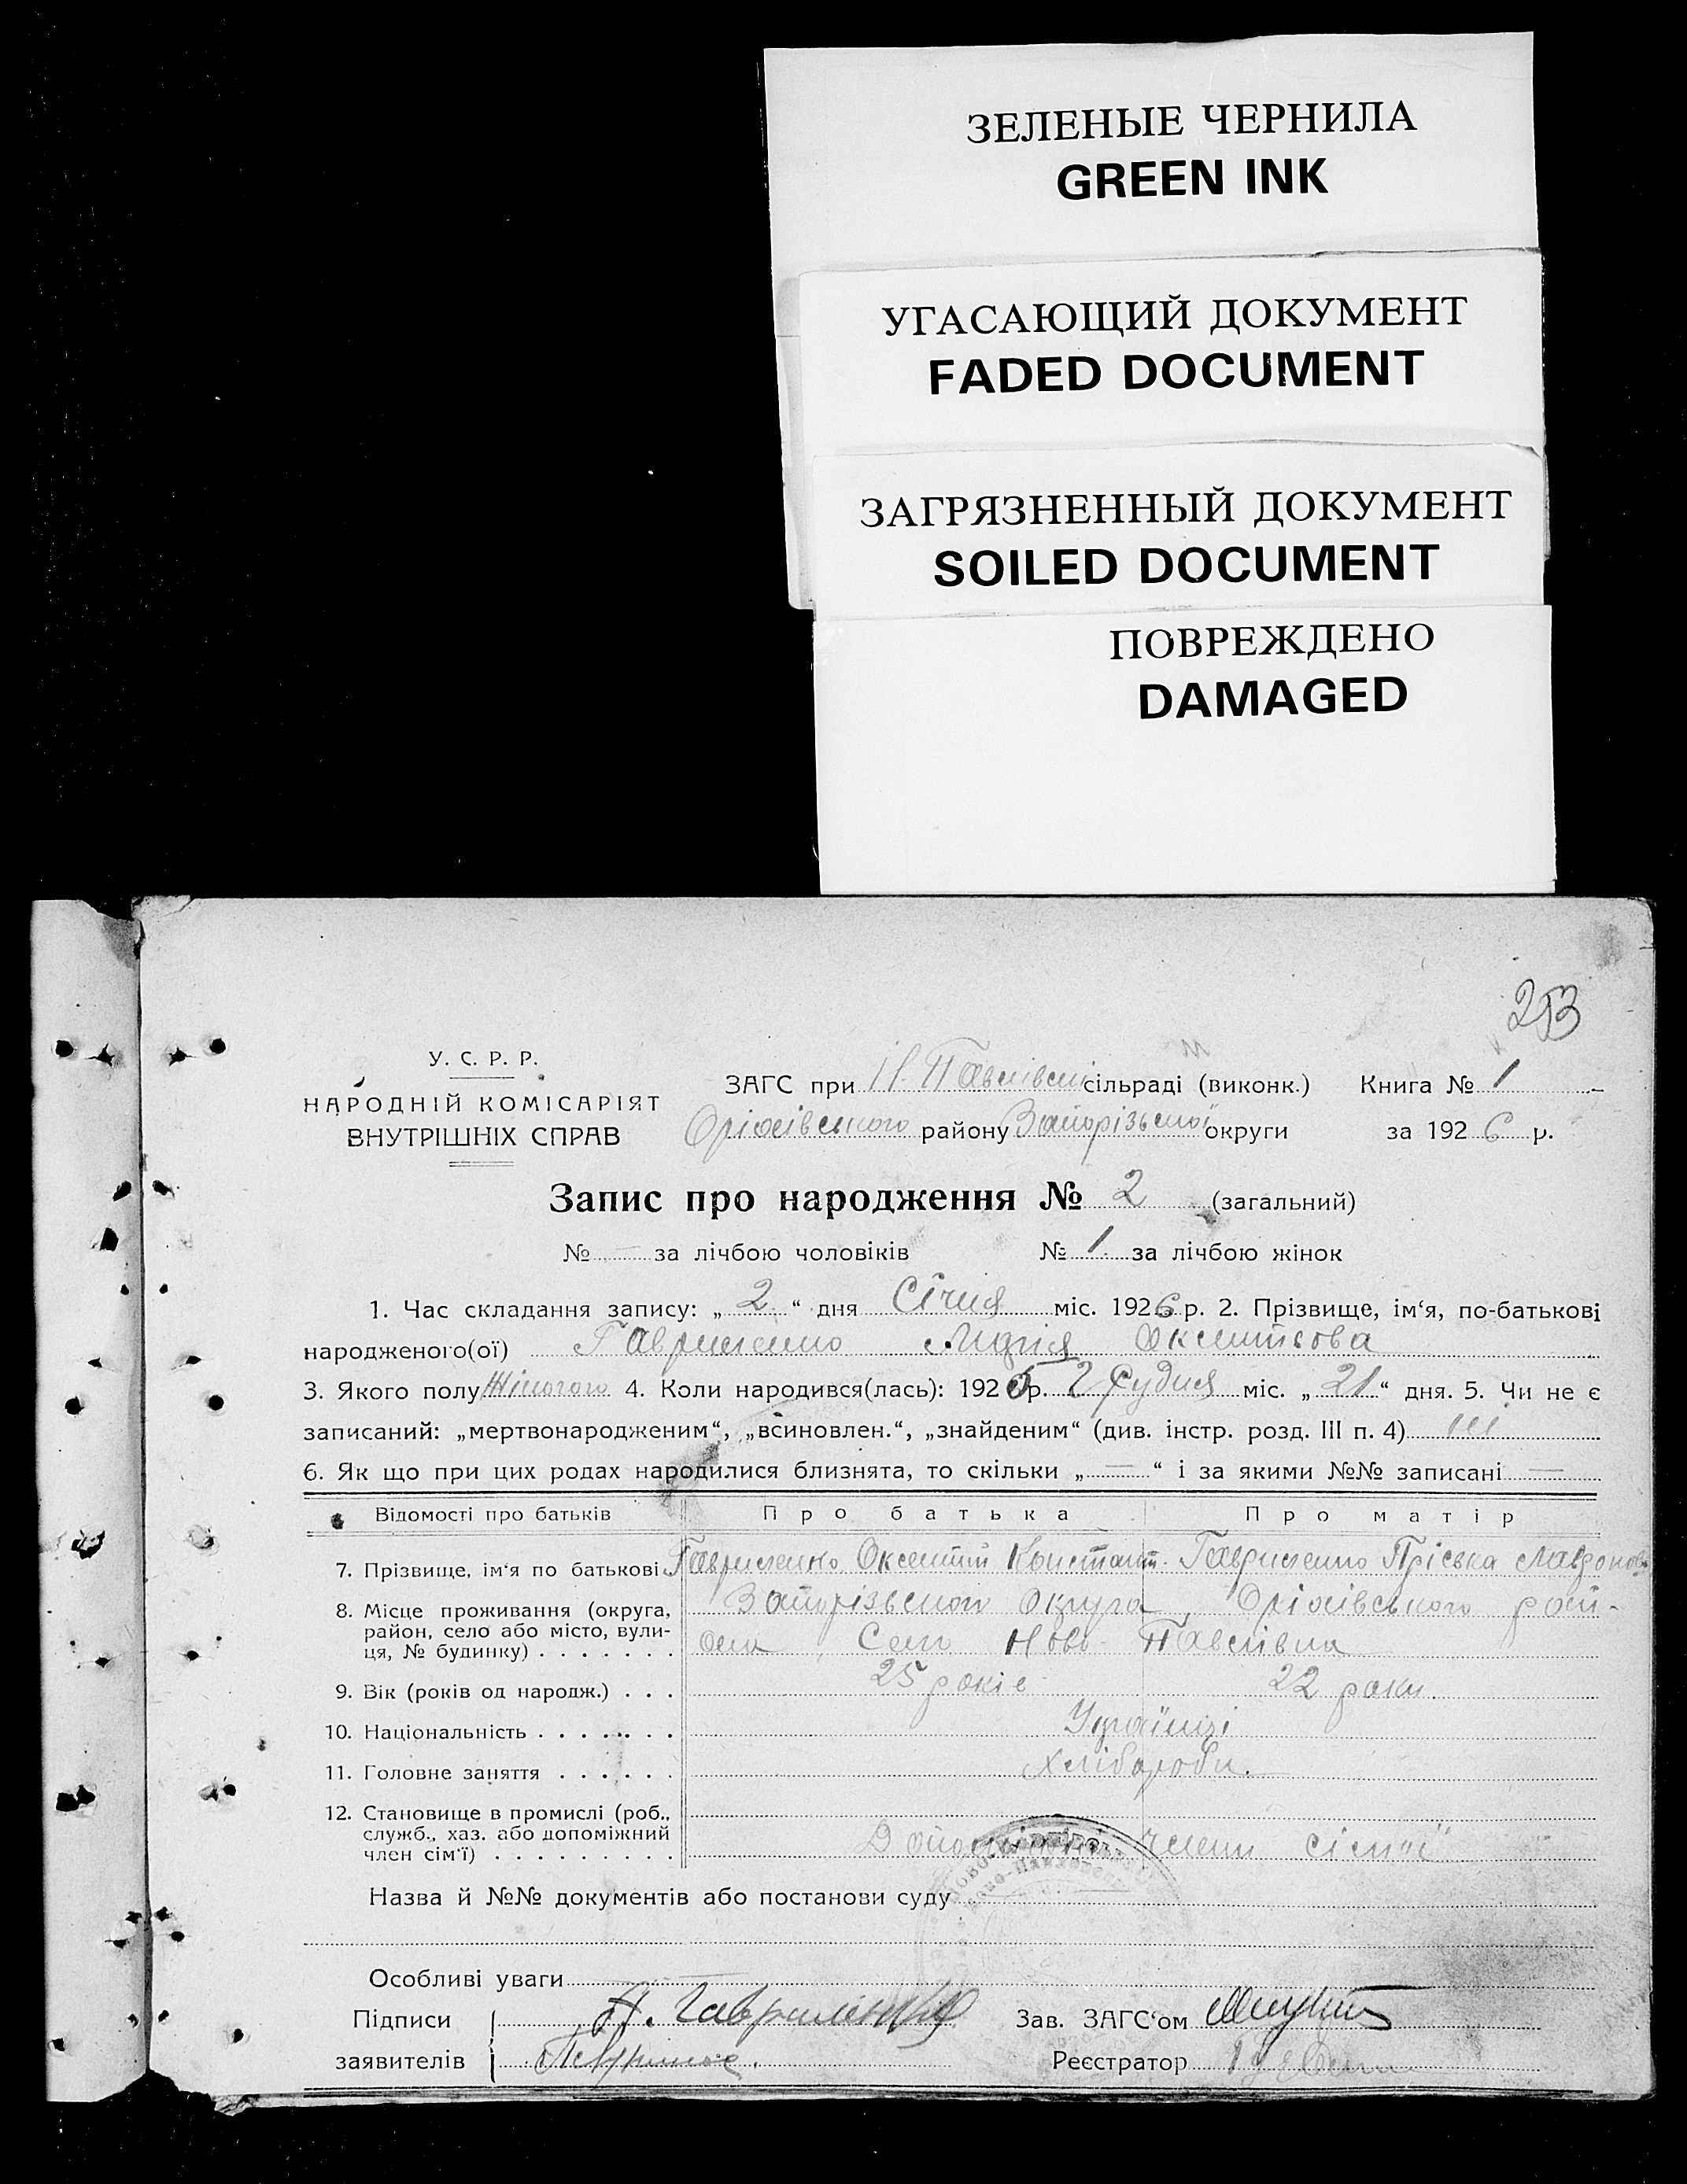 ЗЕЛЕНЫЕ ЧЕРНИЛА
GREEN INK
УГАСАЮЩИЙ ДОКУМЕНТ
FADED DOCUMENT
ЗАГРЯЗНЕННЫЙ ДОКУМЕНТ
SOILED DOCUMENT
ПОВРЕЖДЕНО
DAMAGED
253
У. С. Р. Р.
НАРОДНІЙ КОМІСАРІЯТ
ВНУТРІШНІХ СПРАВ
ЗАГС при Н. Павлівській сільраді (виконк.) Книга № 1
Оріхівського району Запорізької округи за 1926 р.
Запис про народження № 2 (загальний)
№ — за лічбою чоловіків № 1 за лічбою жінок
1. Час складання запису: „ 2 “ дня Січня міс. 1926 р. 2. Прізвище, ім‘я, по-батькові
народженого(ої) Гавриленко Оксентьова
3. Якого полу Жіночого 4. Коли народився(лась): 1925 р. Грудня міс. „ 21 “ дня. 5. Чи не є
записаний: „мертвонародженим“, „всиновлен.“, „знайденим“ (див. інстр. розд. III п. 4)
6. Як що при цих родах народилися близнята, то скільки „ — “ і за якими №№ записані —
Відомості про батьків Про батька Про матір
7. Прізвище, ім‘я по батькові Гавриленко Оксентий Констант. Гавриленко Пріська
8. Місце проживання (округа, район, село або місто, вулиця, № будинку) Запорізького Округа, Оріхівського рай-
она, Село Ново-Павлівка
9. Вік (років од народж.) 25 років 22 роки.
10. Національність Українці
11. Головне заняття Хлібороби.
12. Становище в промислі (роб., служб., хаз. або допоміжний член сім‘ї) Допоміжні члени сімї
Назва й №№ документів або постанови суду
Особливі уваги
Підписи заявителів А. Гавриленко
Зав. ЗАГС‘ом
Реєстратор